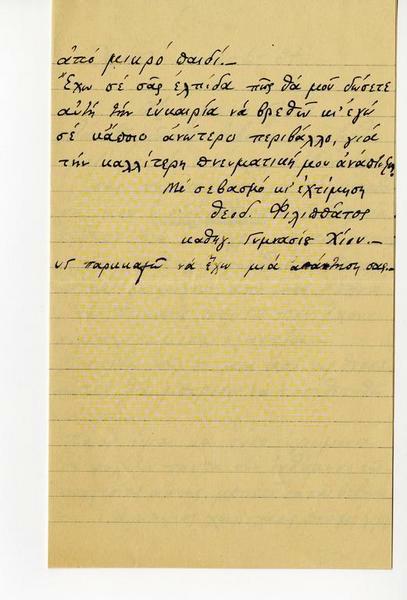 ἀπό μικρό παιδί.-
Ἔχω σέ σᾶς ἐλπίδα πῶς θά μοῦ δώσετε
αὐτή τήν εὐκαιρία νά βρεθῶ κι' ἐγώ
σέ κάποιο ἀνώτερο περιβάλλο, γιά
τήν καλλίτερη πνευματική μου ἀνάπτυξη
Μέ σεβασμό κι' ἐχτίμηση
Θεοδ. Φιλιππᾶτος
καθηγ. Γυμνασίου Χίου.-
νά ἔχω μιά ἀπάντηση σας.-